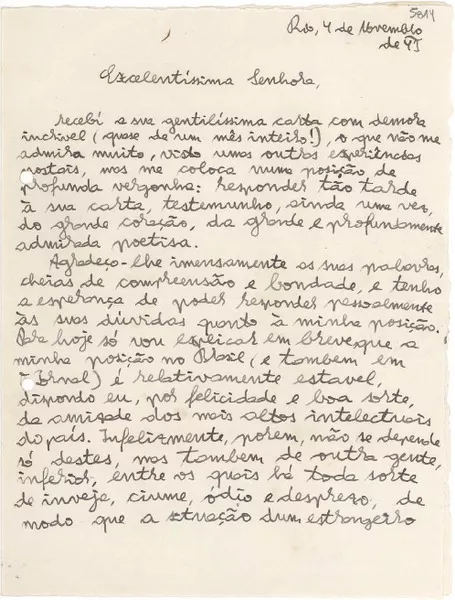 5814
Rio, 4 de Novembro
de 41
Excelentíssima Senhora,
recebi a sua gentilíssima carta com demora
incrivel (quase de um mês inteiro!), o que não me
admira muito, visto umas outras experiências
postais, mas me coloca numa posição de
profunda vergonha: responder tão tarde
à sua carta, testemunho, ainda uma vez,
do grande coração, da grande e profundamente
admirada poetisa.
Agradeço-lhe imensamente as suas palavras,
cheias de compreensão e bondade, e tenho
a esperança de poder responder pessoalmente
às suas dúvidas quanto à minha posição.
Para hoje só vou explicar em breve, que a
minha posição no Brasil (e tambem em
"A" Jornal) é relativamente estavel,
dispondo eu, por felicidade e boa sorte,
da amizade dos mais altos intelectuais
do país. Infelizmente, porem, não se depende
só destes, mas tambem de outra gente,
inferior, entre os quais há toda sorte
de inveja, ciume, ódio e desprezo, de
modo que a situação dum estrangeiro